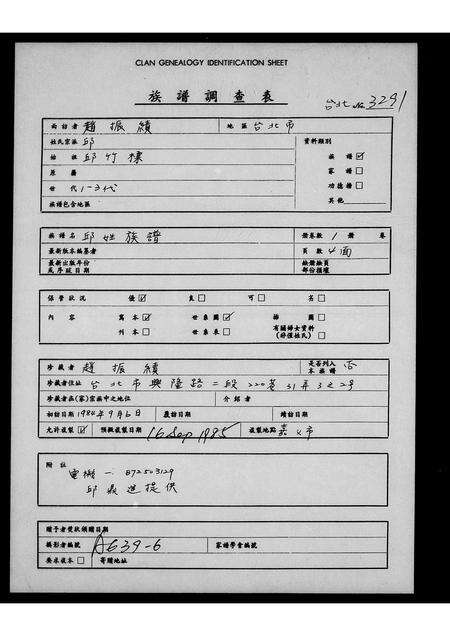 CLAN GENEALOGY IDENTIFICATION SHEET
族譜調查表
台北 No. 3291
面訪者 趙振績 地區 台北市
姓氏宗派 邱 資料類別
始祖 邱竹樓 族譜 ☑
原籍 家譜 □
世代 1-3代 功德譜 □
族譜包含地區 其他
族譜名 邱姓族譜 冊卷數 1 冊 卷
最新版本編纂者 頁數 4面
保管狀況 優☑ 良□ 可□ 劣□
內容 寫本☑ 世系圖☑ 插圖□
刊本□ 世系表□ 有關婦女資料
珍藏者 趙振績 是否列入本族譜 否
珍藏者住址 台北市興隆路二段220巷31弄3之2號
珍藏者函(家)宗族中之地位 介紹者
初訪日期 1984年9月6日 覆訪日期 續訪日期
允許複製☑ 預擬複製日期 16 Sep 1985 複製地點 嘉义市
附註
電機一: 872503129
提供
贈予者雙狀領贈日期
攝影者編號 A639-6 家譜學會編號
要求複本□ 寄贈地址